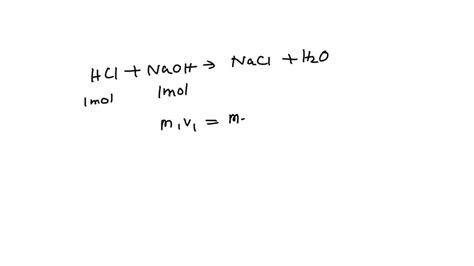 HCl + NaOH → NaCl + H2O
1mol 1mol
m1v1 = m